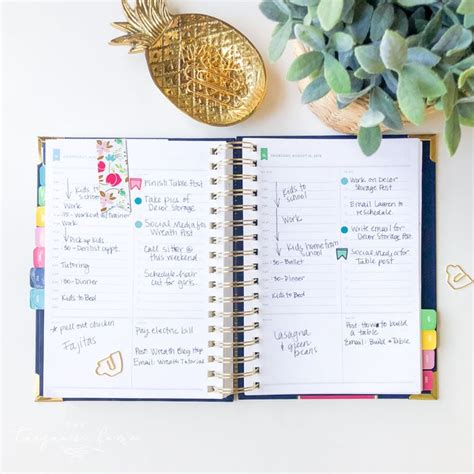 Kids to
school
Work
Pick up kids
30 - Dentist appt.
Tutoring
Dinner
Kids to Bed
* pull out chicken
Fajitas
Finish Table Post
Take pics of
Decor Storage
Social Media for
Wreath Post
Call sister @
this weekend
Schedule hair
cut for girls
Pay electric bill
Post: Wreath Blog Hop
Email: Wreath Tutorial
THURSDAY, AUGUST
Kids to
school
Work
Kids home from
school
30 - Ballet
30 - Dinner
Kids to Bed
Lasagna
& green
beans
Work on Decor
Storage Post
Email Lauren to
reschedule
Write email for
Decor Storage Post
Social Media for
Table post
Post: How to build
a table
Email: Build a Table